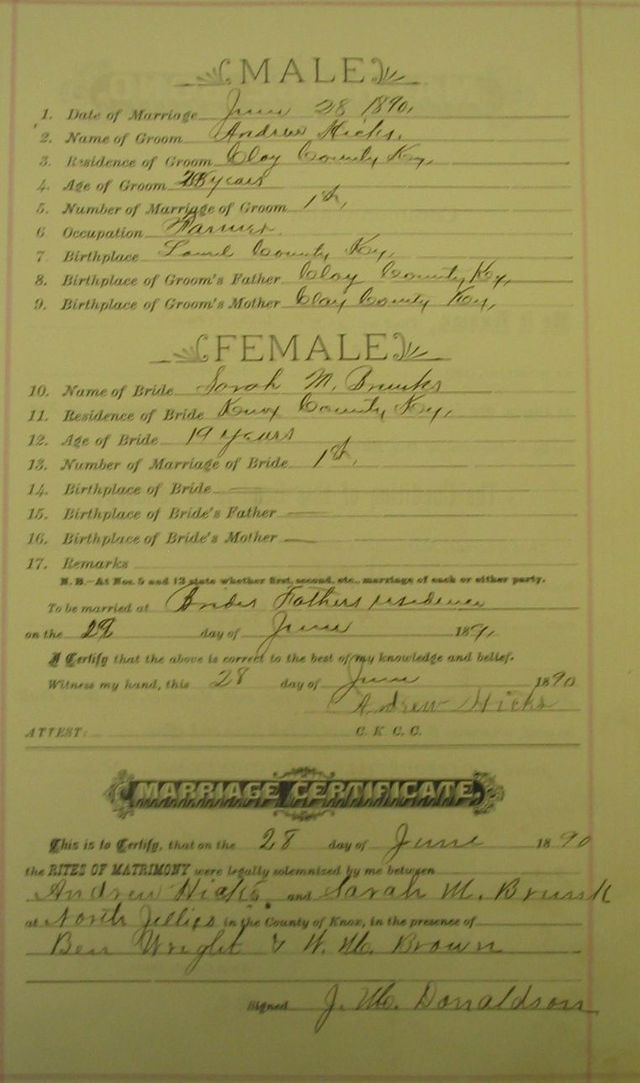 MALE
1. Date of Marriage June 28 1890,
2. Name of Groom Andrew Hicks.
3. Residence of Groom Clay County Ky,
4. Age of Groom years
5. Number of Marriage of Groom 1st,
6 Occupation Farmer.
7 Birthplace Laurel County Ky,
8. Birthplace of Groom's Father Clay County Ky,
9. Birthplace of Groom's Mother Clay County Ky,
FEMALE
10. Name of Bride Sarah M,
11. Residence of Bride Knox County Ky,
12. Age of Bride 19 years
13. Number of Marriage of Bride 1st,
14. Birthplace of Bride —
15. Birthplace of Bride's Father —
16. Birthplace of Bride's Mother —
17. Remarks
N. B.—At Nos. 5 and 13 state whether first, second, etc., marriage of each or either party.
To be married at Brides Fathers residence
on the day of June 189
I Certify that the above is correct to the best of my knowledge and belief.
Witness my hand, this 28 day of June 1890
Andrew Hicks
ATTEST: C. K. C. C.
MARRIAGE CERTIFICATE
This is to Certify, that on the 28 day of June 1890
the RITES OF MATRIMONY were legally solemnized by me between
Andrew Hicks. and Sarah M. Brunk
at North Jellico in the County of Knox, in the presence of
Ben Wright & W. M. Brown
Signed J. M. Donaldson